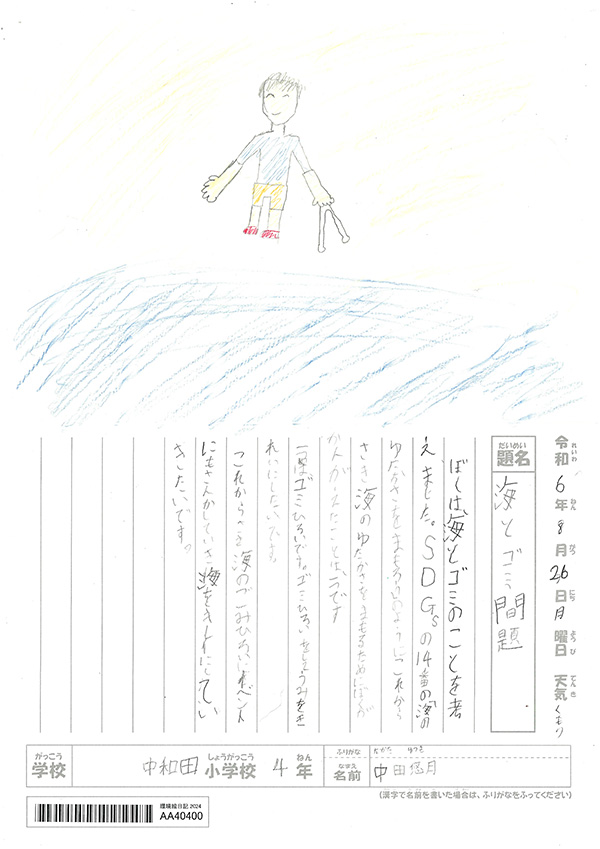 令和6年8月26日月曜日 天気くもり
れいわ ねん がつ にち ようび てんき
だいめい
題名 海とゴミ問題
ぼくは、海とゴミのことを考
えました。SDGsの14番の「海の
ゆたかさをまもろう」のようにこれから
さき海のゆたかさをまもるためにぼくが
かんがえたことは、一つです
一つはゴミひろいです。ゴミひろいをしてうみをき
れいにしたいです。
これから海のごみひろいイベント
にもさんかしていき海をきれいにしてい
きたいです。
がっこう しょうがっこう ねん
学校 中和田小学校 4年
ふりがな なかた
なまえ
名前 中田悠月
(漢字で名前を書いた場合は、ふりがなをふってください)
環境絵日記 2024
AA40400